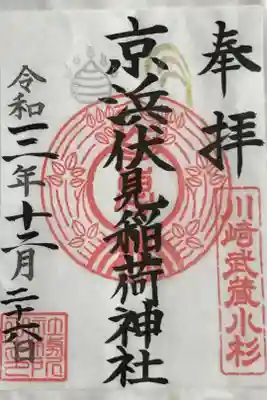 奉拝
川崎武蔵小杉
京浜伏見稲荷神社
令和二年十二月二十六日